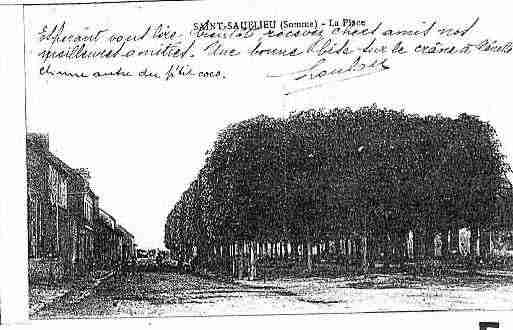 SAINT-SAUFLIEU (Somme) - La Place
Espérant vous lire bientôt, recevez chers amis nos
meilleures amitiés. Une bonne bise sur le crâne à
et une autre du p'tit coco.